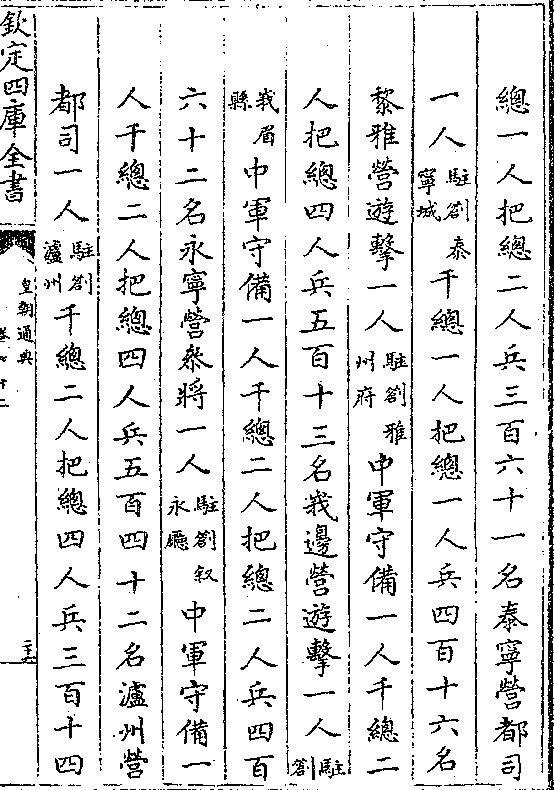 總一人把總二人兵三百六十一名泰寧營都司
一人駐劄泰寧城千總一人把總一人兵四百十六名
黎雅營遊擊一人駐劄雅州府中軍守備一人千總二
人把總四人兵五百十三名峩邊營遊擊一人駐劄
峩眉縣中軍守備一人千總二人把總二人兵四百
六十二名永寧營叅將一人駐劄叙永廳中軍守備一
人千總二人把總四人兵五百四十二名瀘州營
都司一人駐劄瀘州千總二人把總四人兵三百十四
欽定四庫全書
皇朝通典